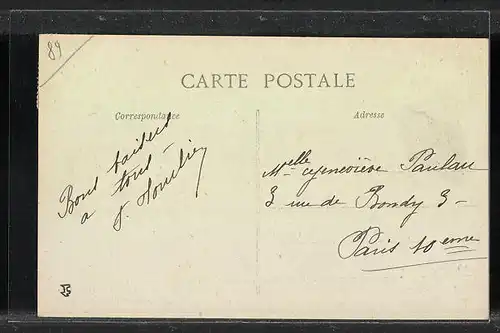 89
CARTE POSTALE
Correspondance
Adresse
Bons baisers
a tous -
Melle Geneviève Paulau
3 rue de Bondy 3 -
Paris 10eme